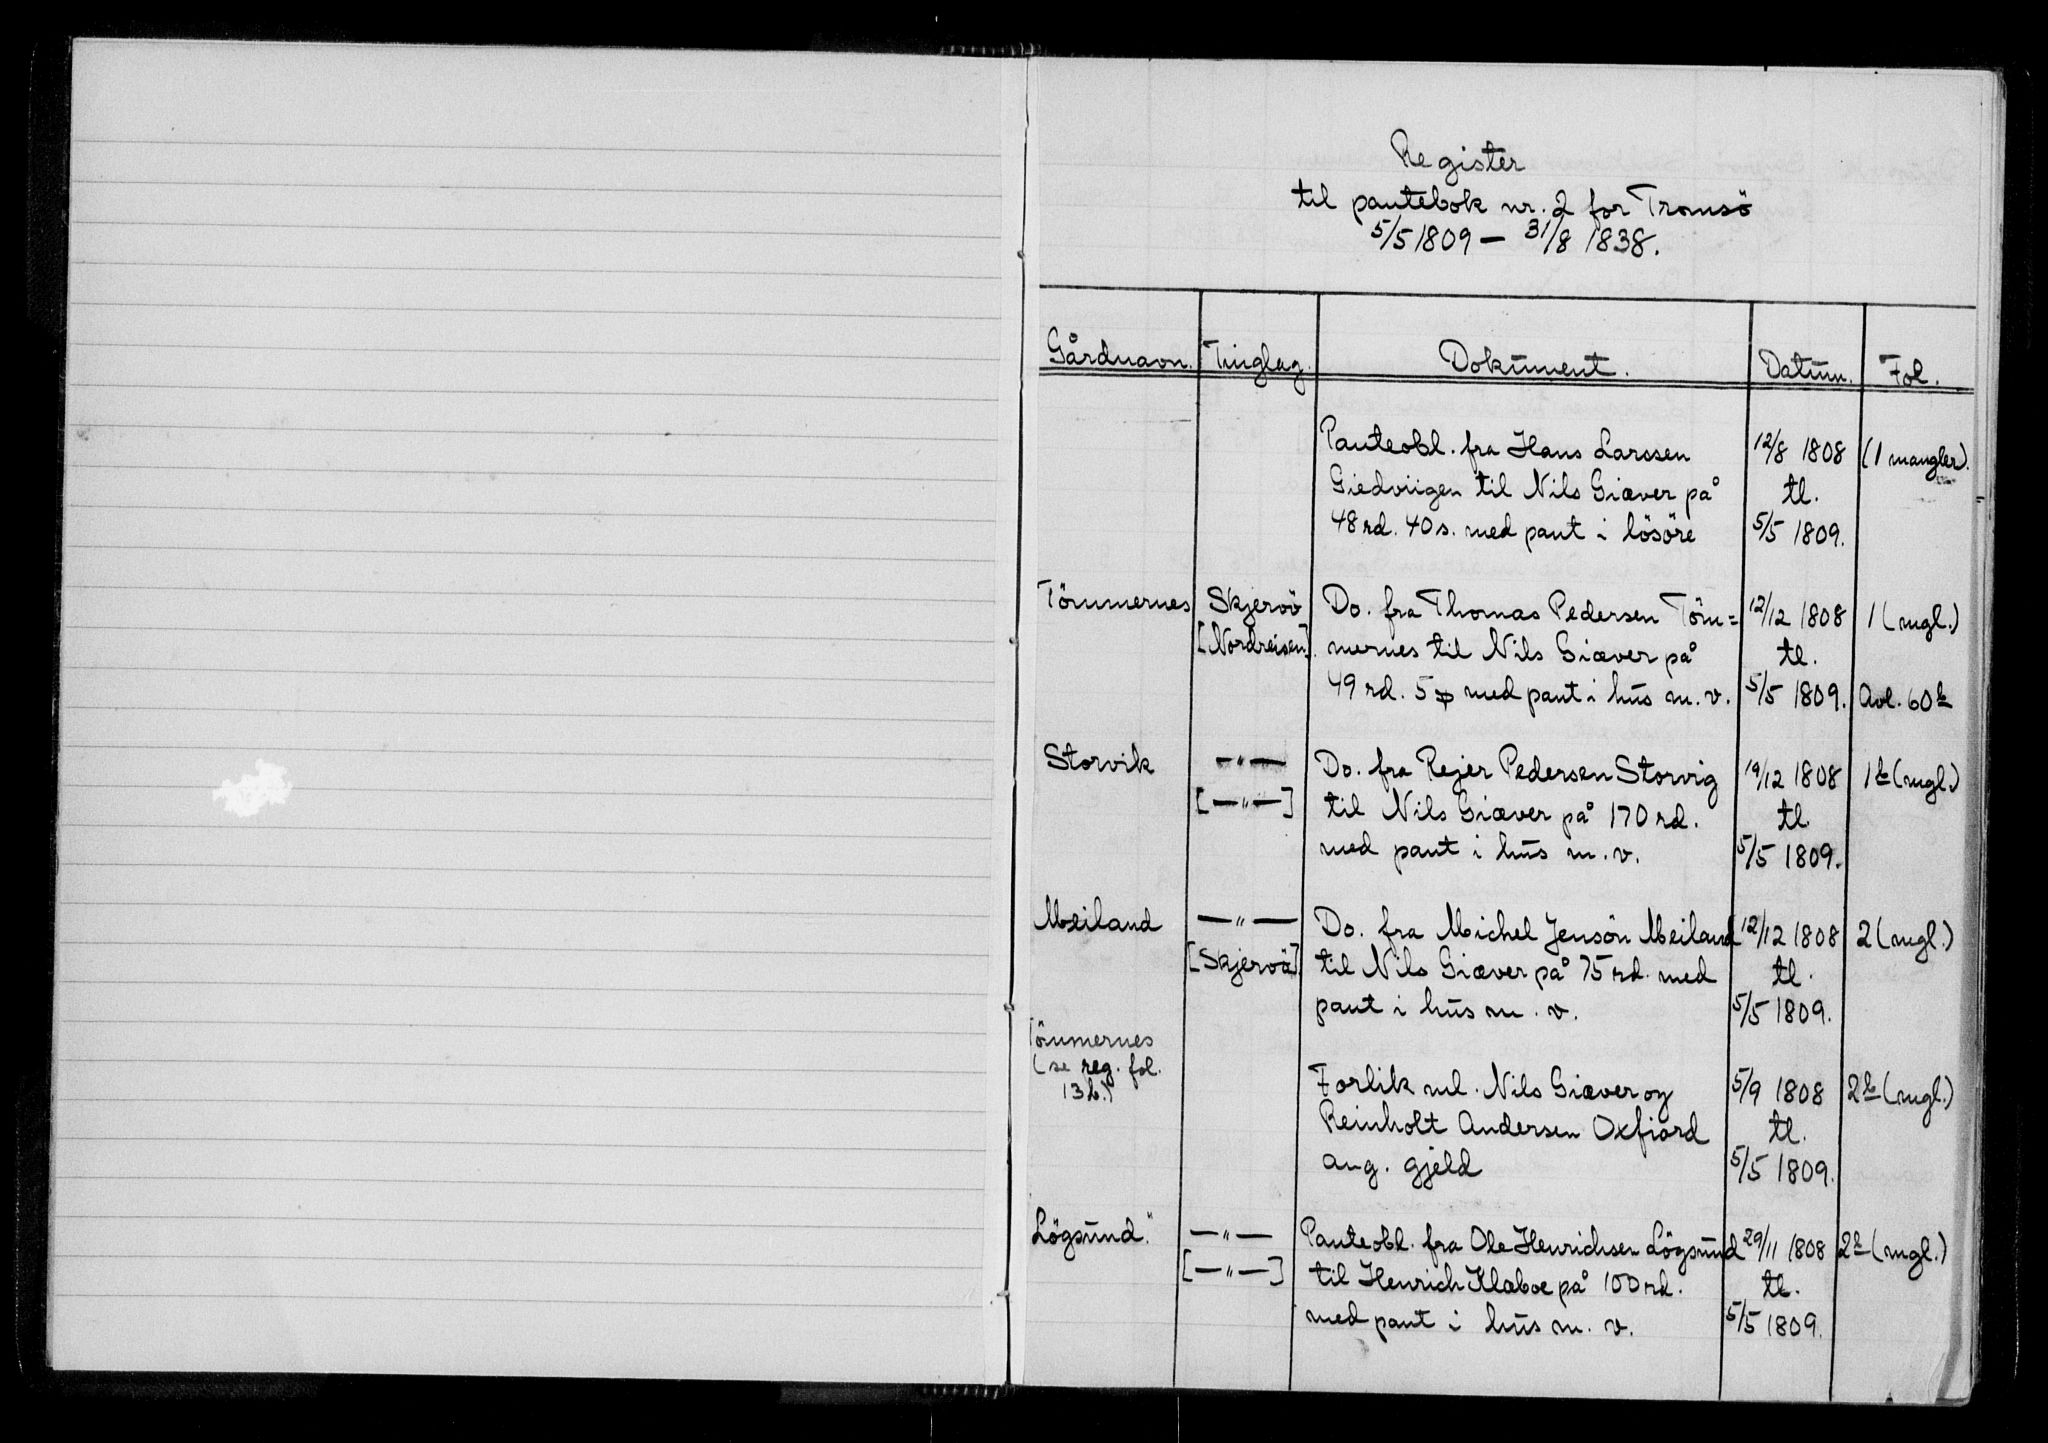 Register
til pantebok nr. 2 for Tromsö
5/5 1809 — 31/8 1838.
Gårdnavn. Tinglag. Dokument. Datum. Fol.
Panteobl. fra Hans Larssen 12/8 1808 (1 mangler).
Giedviigen til Nils Giæver på tl.
48 rd. 40 s. med pant i lösöre 5/5 1809.
Tömmernes Skjervö Do. fra Thomas Pedersen Töm= 12/12 1808 1 (mgl.)
[Nordreisen]. mernes til Nils Giæver på tl.
49 rd. 5 med pant i hus m. v. 5/5 1809. Avl. 60 b
Storvik —"— Do. fra Rejer Pedersen Storvig 19/12 1808 1 b (mgl.)
[—"—] til Nils Giæver på 170 rd. tl.
med pant i hus m. v. 5/5 1809.
Meiland —"— Do. fra Michel Jensön Meiland 12/12 1808 2 (mgl.)
[Skjervö] til Nils Giæver på 75 rd. med tl.
pant i hus m. v. 5/5 1809.
Tömmernes
(se reg. fol. Forlik ml. Nils Giæver og 5/9 1808 2 b (mgl.)
13 b.) Reinholt Andersen Oxfiord tl.
ang. gjeld 5/5 1809.
Lögsund." —"— Panteobl. fra Ole Henrichsen Lögsund 29/11 1808 2 b (mgl.)
[—"—] til Henrich Klæboe på 100 rd. tl.
med pant i hus m. v. 5/5 1809.